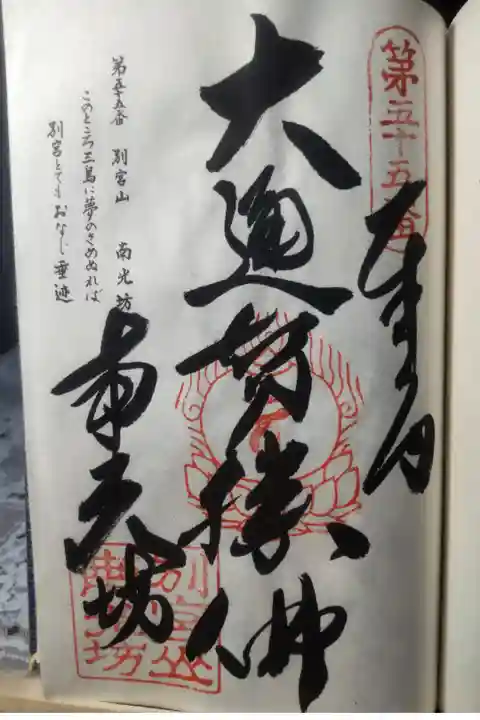 第五十五番
奉納
大通智勝佛
第五十五番 別宮山 南光坊
このところ三島に夢のさめぬれば
別宮とてもおなじ垂迹
南光坊
別宮山
南光坊